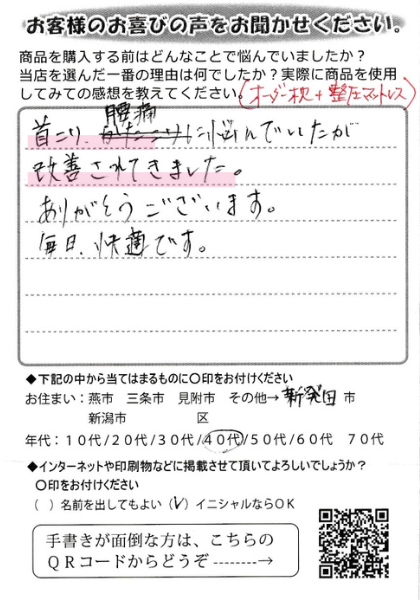 お客様のお喜びの声をお聞かせください。
商品を購入する前はどんなことで悩んでいましたか?
当店を選んだ一番の理由は何でしたか?実際に商品を使用
してみての感想を教えてください。(オーダー枕+整圧マットレス)
腰痛
首こり、かたこりに悩んでいたが
改善されてきました。
ありがとうございます。
毎日、快適です。
◆下記の中から当てはまるものに〇印をお付けください
お住まい:燕市 三条市 見附市 その他→新発田市
新潟市 区
年代:10代/20代/30代/40代/50代/60代 70代
◆インターネットや印刷物などに掲載させて頂いてよろしいでしょうか?
〇印をお付けください
( )名前を出してもよい(✓)イニシャルならOK
手書きが面倒な方は、こちらの
QRコードからどうぞ--------→